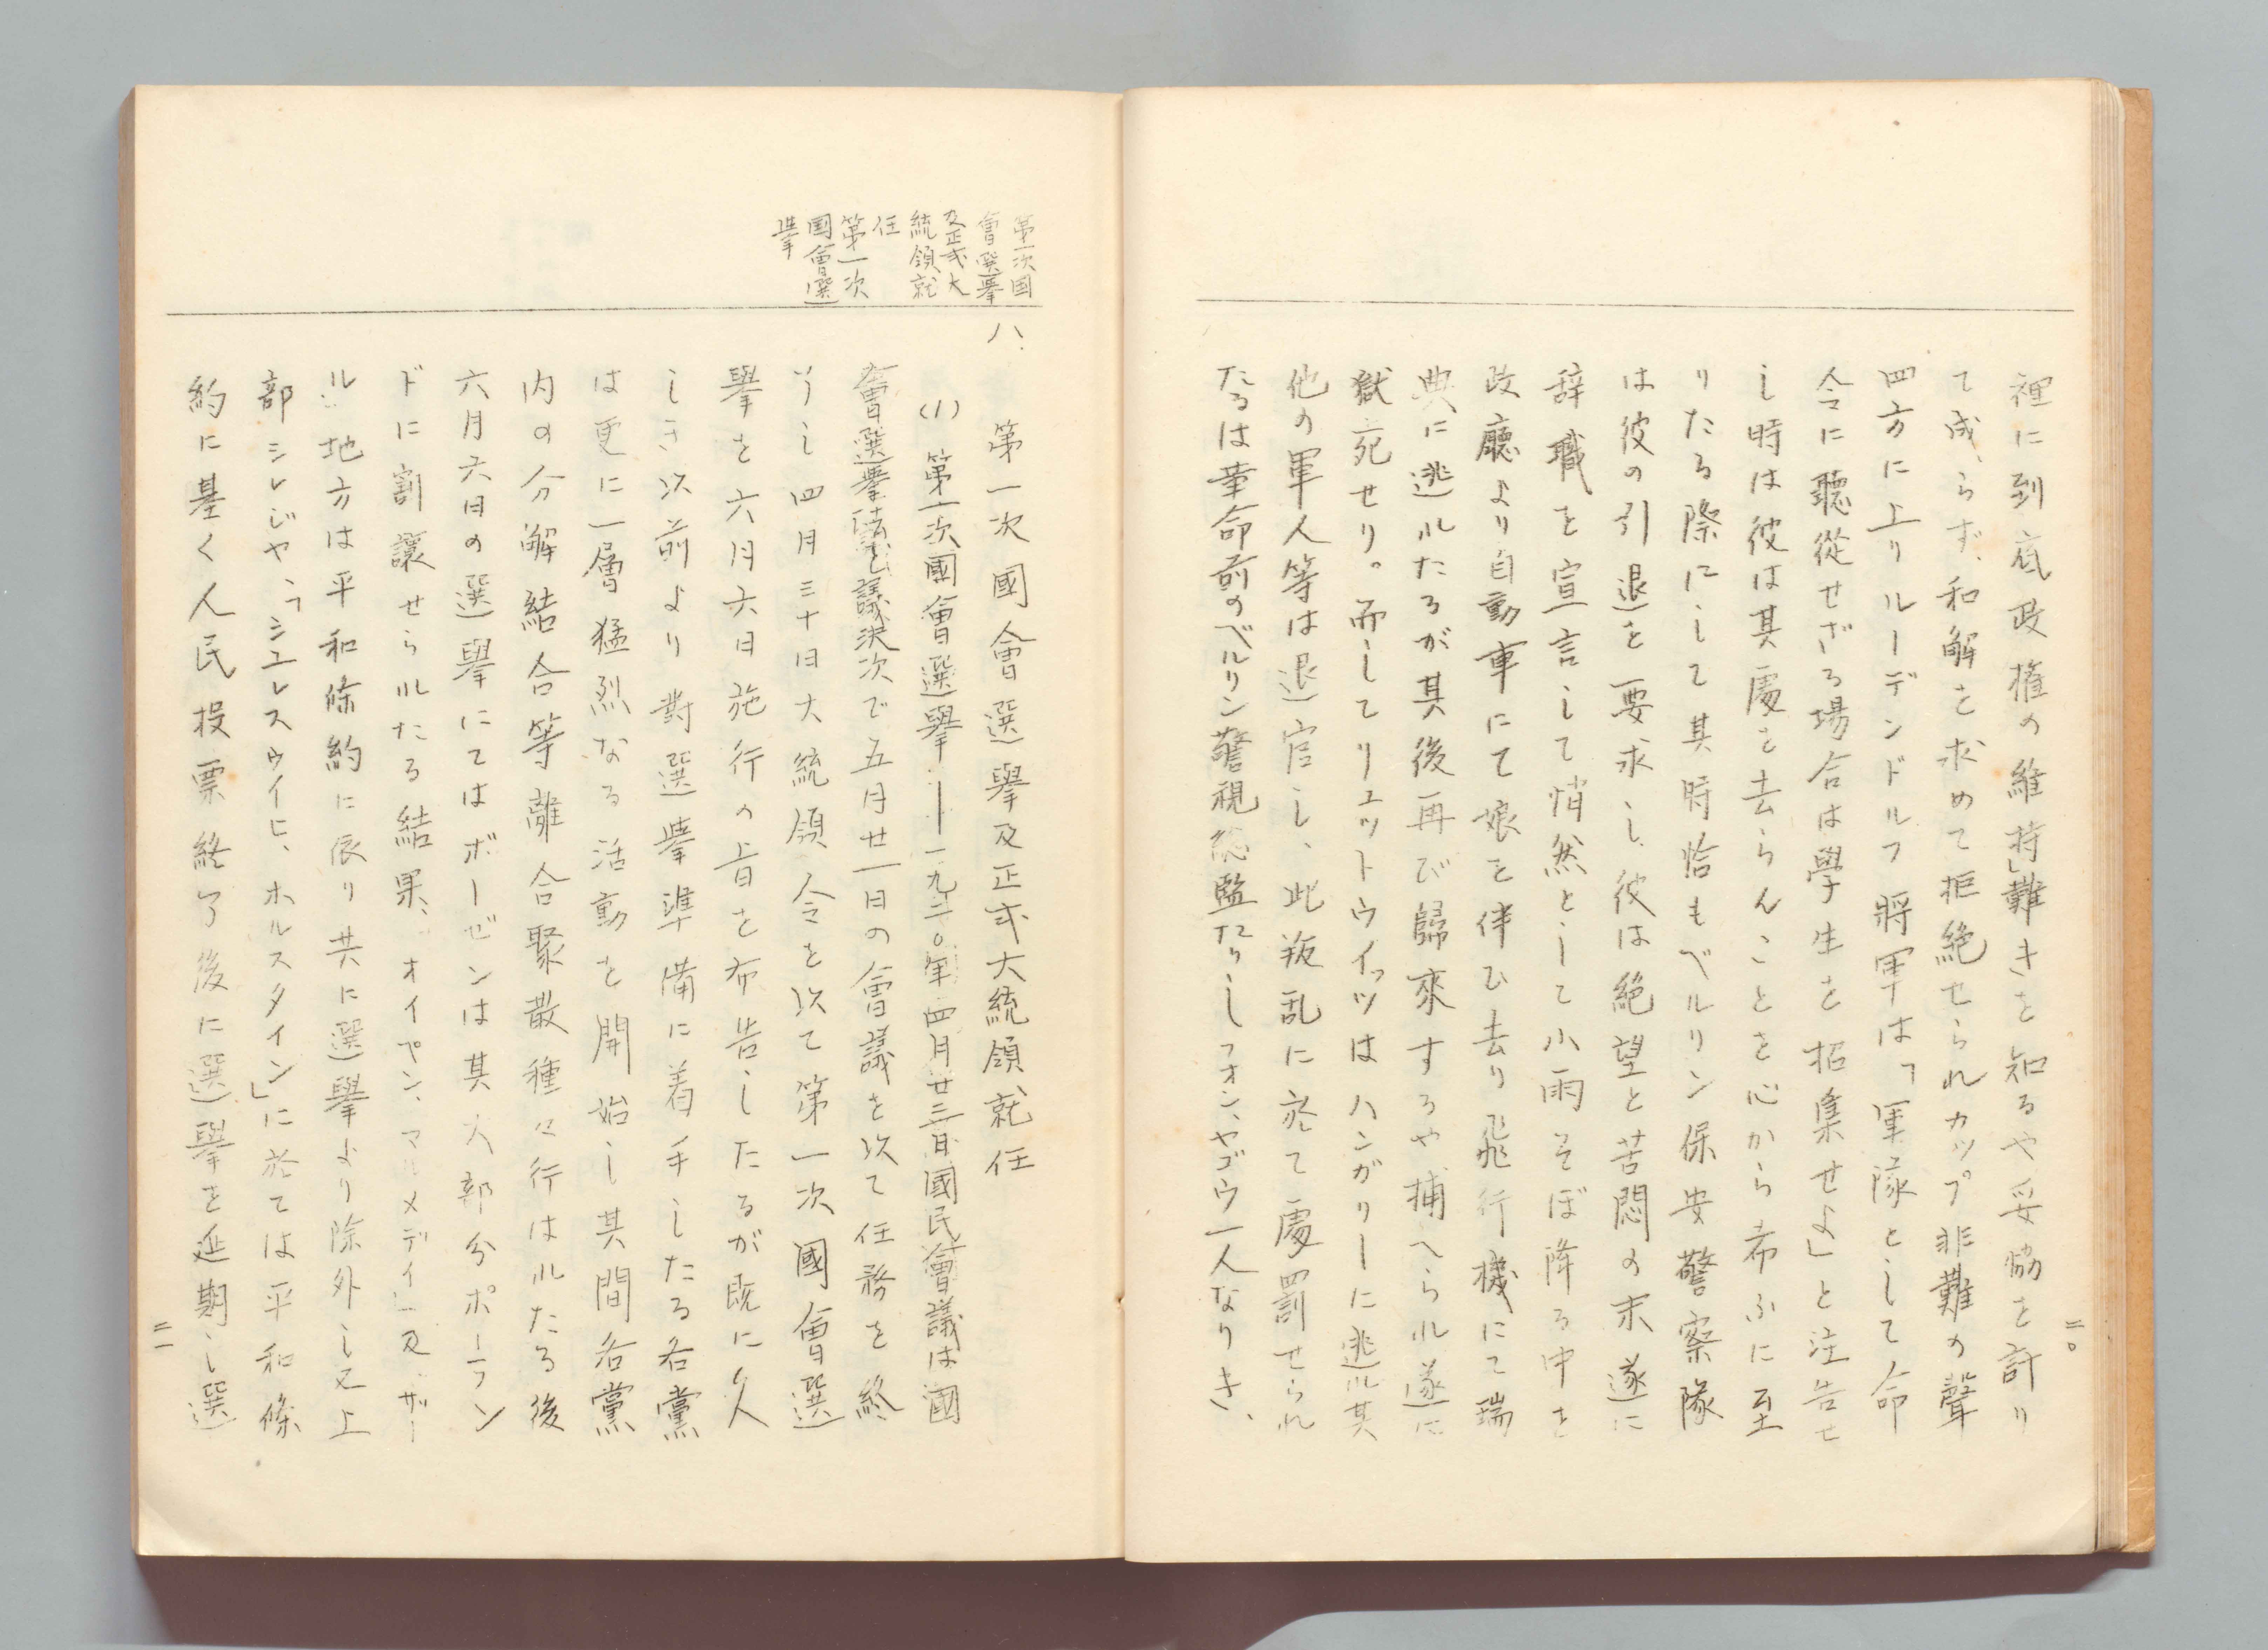 二〇
裡に到底政権の維持難きを知るや妥協を計り
て成らず、和解を求めて拒絶せられカップ非難の聲
四方に上りルーデンドルフ將軍は「軍隊として命
令に聽從せざる場合は學生を招集せよ」と注告せ
し時は彼は其處を去らんことを心から希ふに至
りたる際にして其時恰もベルリン保安警察隊
は彼の引退を要求し、彼は絶望と苦悶の末遂に
辞職を宣言して悄然として小雨そぼ降る中を
政廳より自動車にて娘を伴ひ去り飛行機にて瑞
典に逃れたるが其後再び歸來するや捕へられ遂に
獄死せり。而してリュットウイッツはハンガリーに逃れ其
他の軍人等は退官し、此叛乱に於て處罰せられ
たるは革命前のベルリン警視総監たりしフォン、ヤゴウ一人なりき、
第一次國
會選擧
及正式大
統領就
任
第一次
国會選
擧
八、
第一次國會選擧及正式大統領就任
(1) 第一次國會選擧──一九二〇年四月廿三日國民會議は國
會選擧法を議決次で五月廿一日の會議を以て任務を終
りし四月三十日大統領令を以て第一次國會選
擧を六月六日施行の旨を布告したるが既に久
しき以前より對選擧準備に着手したる各黨
は更に一層猛烈なる活動を開始し其間各黨
内の分解結合等離合聚散種々行はれたる後
六月六日の選擧にてはポーゼンは其大部分ポーラン
ドに割讓せられたる結果、オイペン、マルメディ」及ザー
ル」地方は平和條約に依り共に選擧より除外し又上
部シレジヤ、「シュレスウイヒ、ホルスタイン」に於ては平和條
約に基く人民投票終了後に選擧を延期し選
二一